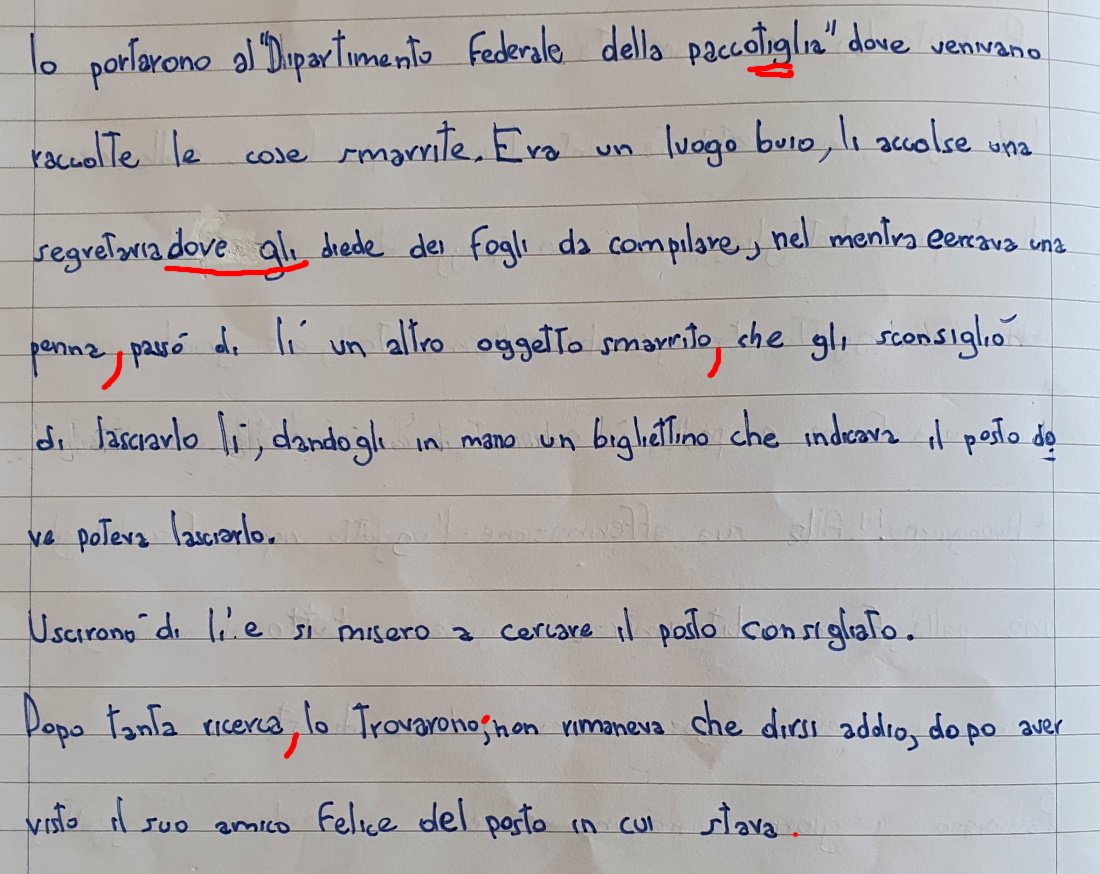 lo portarono al "Dipartimento Federale della paccotiglia" dove venivano
raccolte le cose smarrite. Era un luogo buio, li accolse una
segretaria dove gli diede dei fogli da compilare, nel mentre cercava una
penna, passò di lì un altro oggetto smarrito, che gli sconsigliò
di lasciarlo lì, dandogli in mano un bigliettino che indicava il posto do
ve poteva lasciarlo.
Uscirono di lì e si misero a cercare il posto consigliato.
Dopo tanta ricerca, lo trovarono; non rimaneva che dirsi addio, dopo aver
visto il suo amico felice del posto in cui stava.